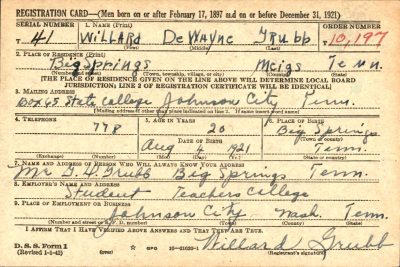 REGISTRATION CARD—(Men born on or after February 17, 1897 and on or before December 31, 1921)
SERIAL NUMBER 1. NAME (Print) ORDER NUMBER
T 41 WILLARD DeWAYNE Grubb 10,197
(First) (Middle) (Last)
2. PLACE OF RESIDENCE (Print)
Big Springs Meigs Tenn.
(Number and street) (Town, township, village, or city) (County) (State)
[THE PLACE OF RESIDENCE GIVEN ON THE LINE ABOVE WILL DETERMINE LOCAL BOARD
JURISDICTION; LINE 2 OF REGISTRATION CERTIFICATE WILL BE IDENTICAL]
3. MAILING ADDRESS
Box 45 State College Johnson City Tenn.
[Mailing address if other than place indicated on line 2. If same insert word same]
4. TELEPHONE 5. AGE IN YEARS 6. PLACE OF BIRTH
778 20 Big Springs
DATE OF BIRTH (Town or county)
Aug 4 1921 Tenn.
(Exchange) (Number) (Mo.) (Day) (Yr.) (State or country)
7. NAME AND ADDRESS OF PERSON WHO WILL ALWAYS KNOW YOUR ADDRESS
Mr G. H. Grubb Big Springs Tenn.
8. EMPLOYER'S NAME AND ADDRESS
Student Teachers College
9. PLACE OF EMPLOYMENT OR BUSINESS
Johnson City Wash. Tenn.
(Number and street or R. F. D. number) (Town) (County) (State)
I AFFIRM THAT I HAVE VERIFIED ABOVE ANSWERS AND THAT THEY ARE TRUE.
D. S. S. Form 1 GPO 16—21630-1 Willard Grubb
(Revised 1-1-42) (Registrant's signature)